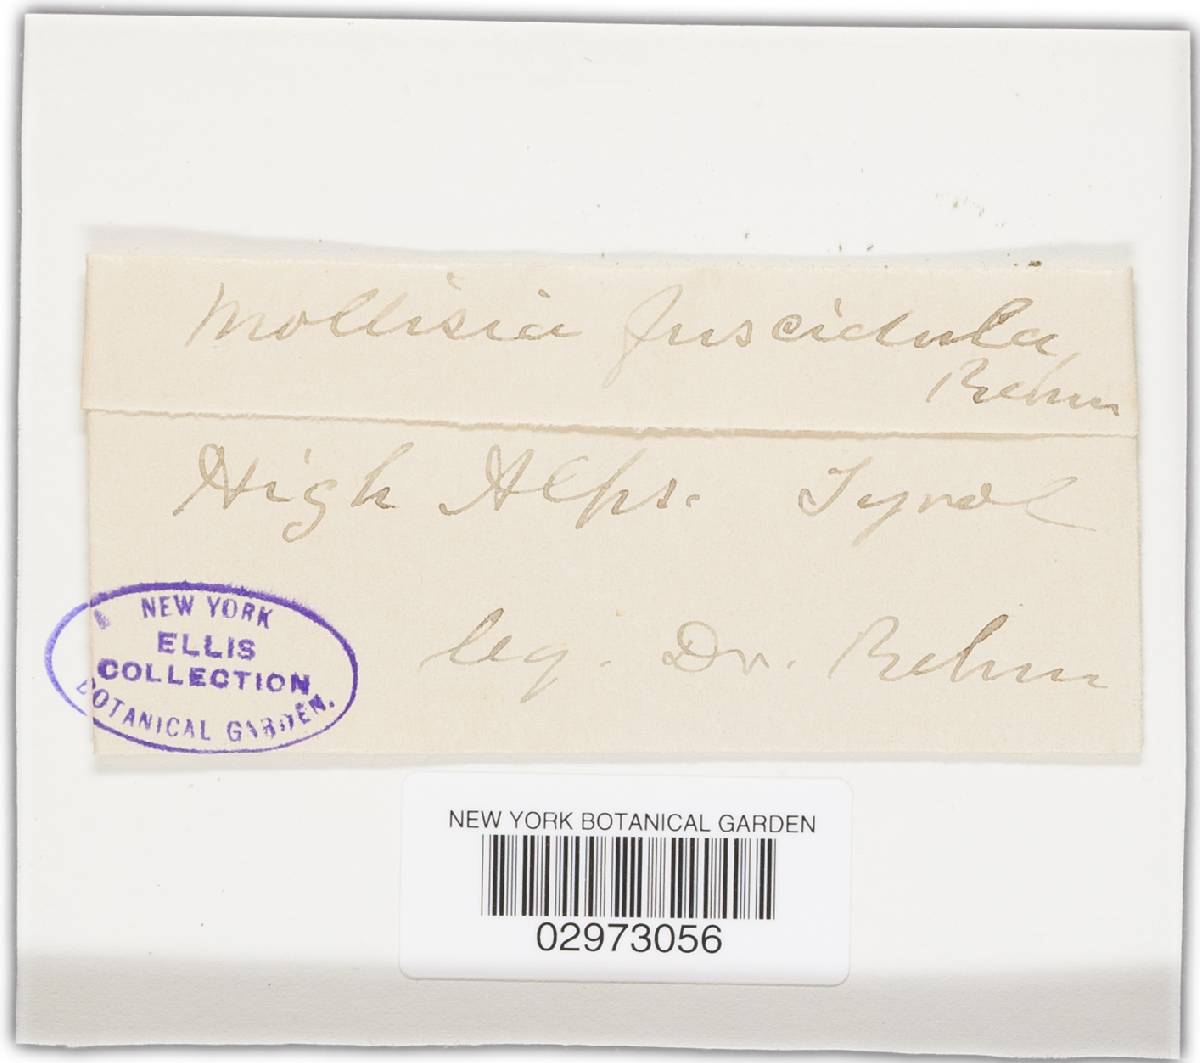 Mollisia fuscidula
Rehm
High Alps. Tyrol
leg. Dr. Rehm
NEW YORK
ELLIS
COLLECTION
BOTANICAL GARDEN.
NEW YORK BOTANICAL GARDEN
02973056